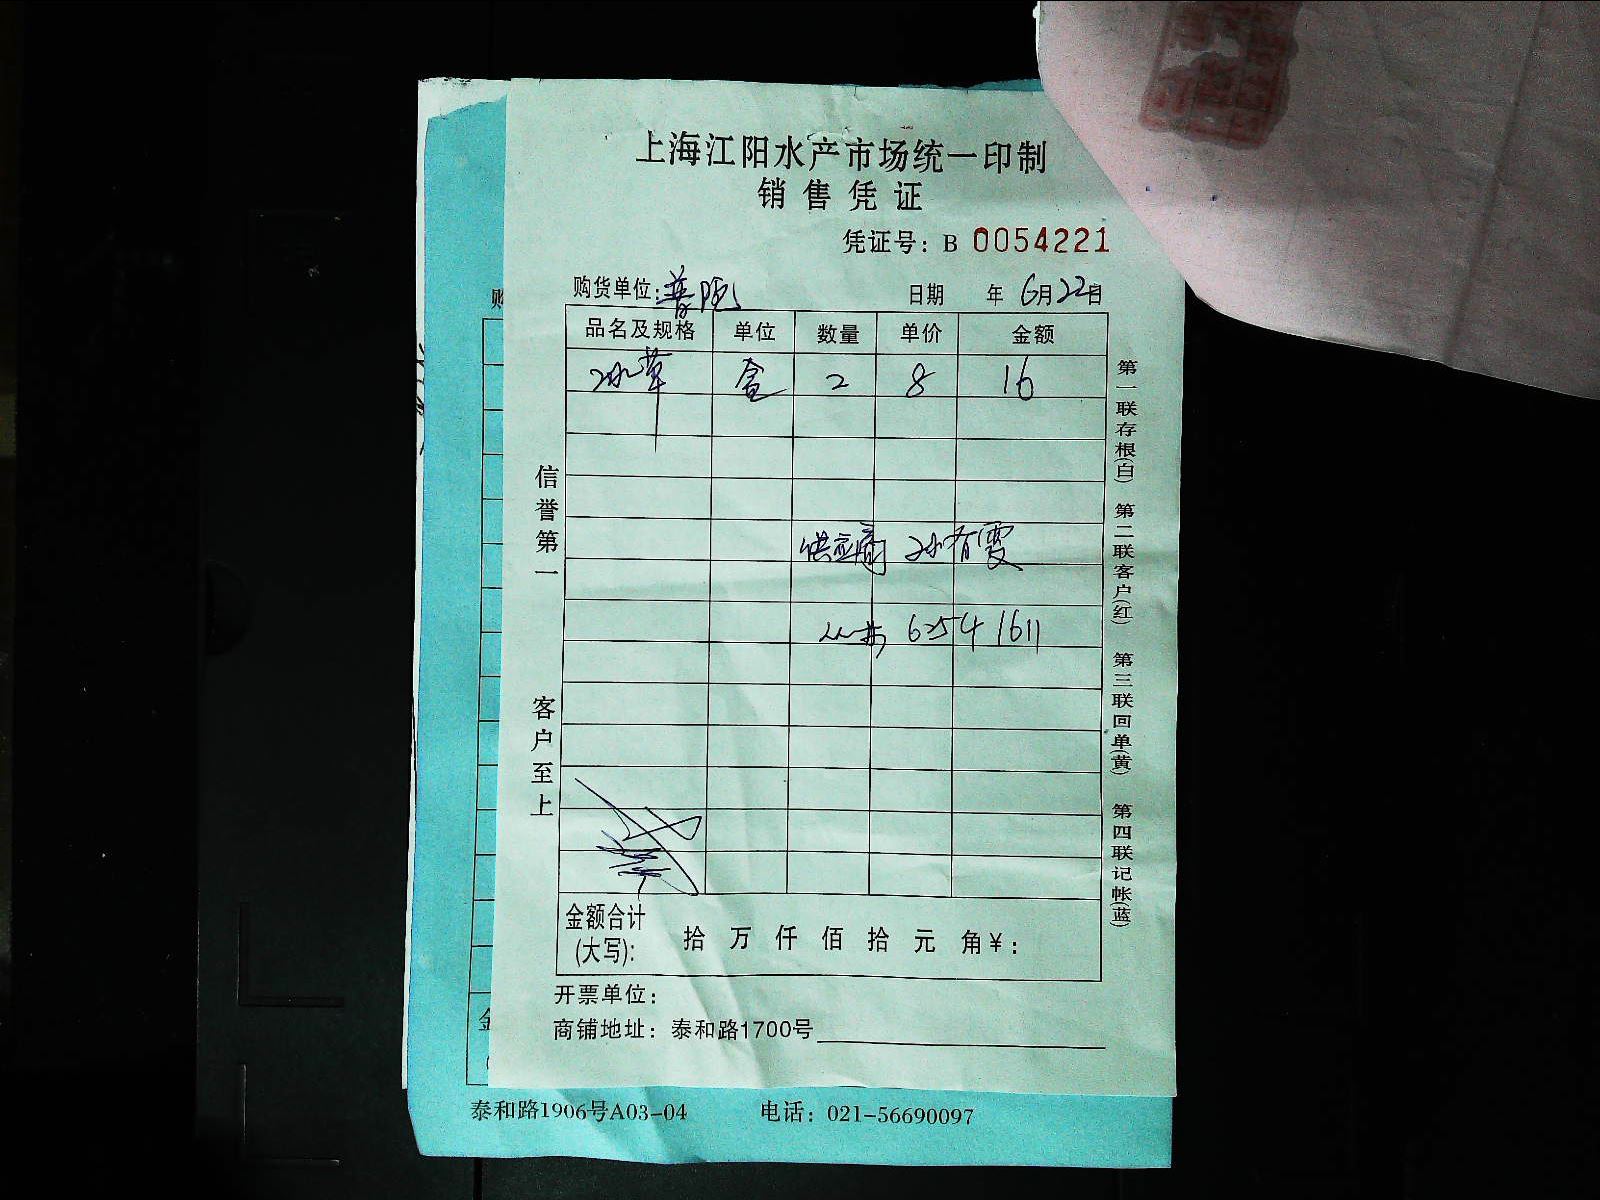 上海江阳水产市场统一印制
销售凭证
凭证号：B 0054221
购货单位：普陀 日期 年 6月22日
品名及规格 单位 数量 单价 金额
冰草 盒 2 8 16
供应商 孙有雯
6254 1611
信誉第一
客户至上
第一联存根(白) 第二联客户(红) 第三联回单(黄) 第四联记帐(蓝)
金额合计 (大写): 拾 万 仟 佰 拾 元 角￥:
开票单位：
商铺地址：泰和路1700号
泰和路1906号A03-04 电话：021-56690097